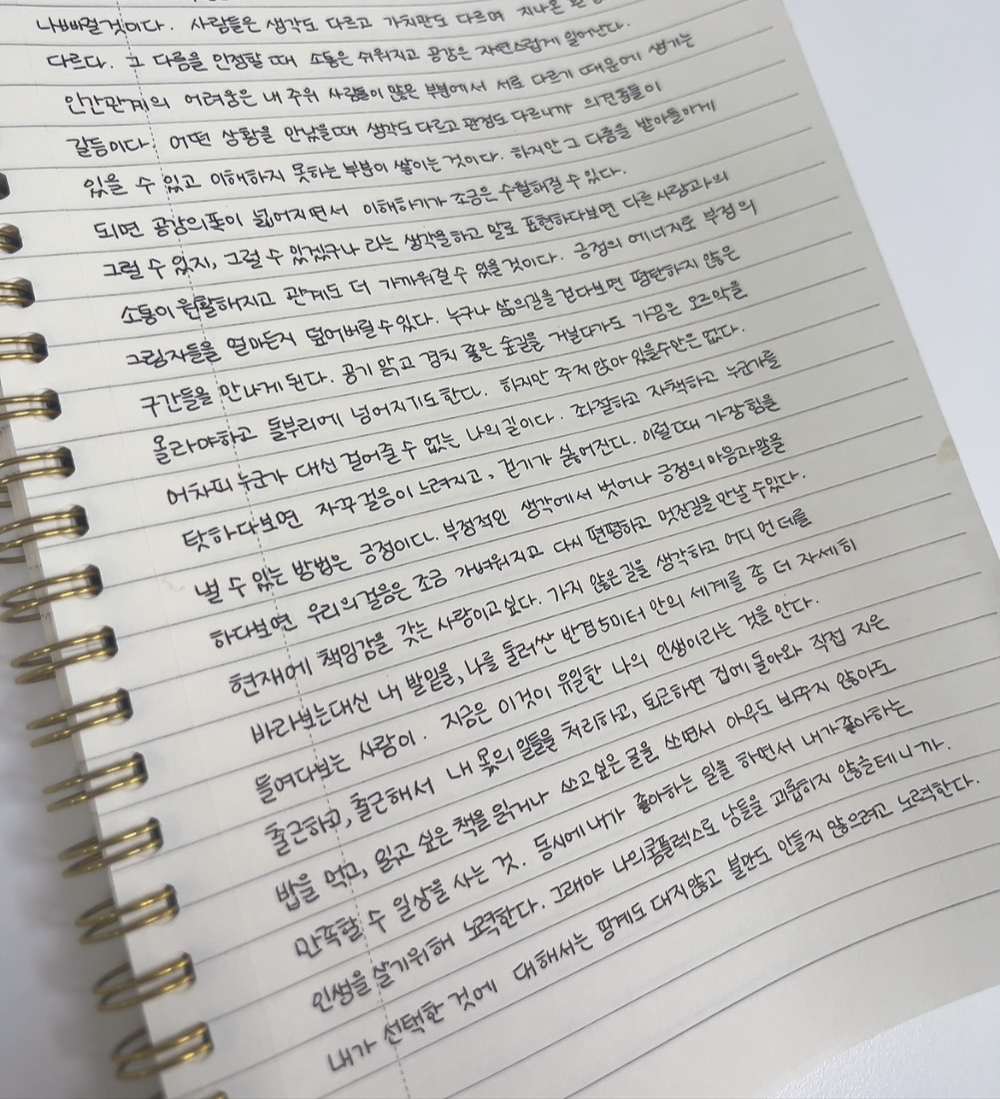 나빠질것이다. 사람들은 생각도 다르고 가치관도 다르며 지나온
다르다. 그 다름을 인정할 때 소통은 쉬워지고 공감은 자연스럽게 일어난다.
인간관계의 어려움은 내 주위 사람들이 많은 부분에서 서로 다르기 때문에 생기는
갈등이다. 어떤 상황을 만났을때 생각도 다르고 관점도 다르니까 의견충돌이
있을 수 있고 이해하지 못하는 부분이 쌓이는 것이다. 하지만 그 다름을 받아들이게
되면 공감의폭이 넓어지면서 이해하기가 조금은 수월해질 수 있다.
그럴 수 있지, 그럴 수 있겠구나 라는 생각을하고 말로 표현하다보면 다른 사람과의
소통이 원활해지고 관계도 더 가까워질 수 있을 것이다. 긍정의 에너지로 부정의
그림자들을 얼마든지 덮어버릴 수 있다. 누구나 삶의길을 걷다보면 평탄하지 않은
구간들을 만나게 된다. 공기 맑고 경치 좋은 숲길을 거닐다가도 가끔은 오르막을
올라야하고 돌부리에 넘어지기도 한다. 하지만 주저 앉아 있을수만은 없다.
어차피 누군가 대신 걸어줄 수 없는 나의 길이다. 좌절하고 자책하고 누군가를
탓하다보면 자꾸 걸음이 느려지고, 걷기가 싫어진다. 이럴 때 가장 힘을
낼 수 있는 방법은 긍정이다. 부정적인 생각에서 벗어나 긍정의 마음과말을
하다보면 우리의걸음은 조금 가벼워지고 다시 편평하고 멋진길을 만날 수있다.
현재에 책임감을 갖는 사람이고싶다. 가지 않은 길을 생각하고 어디 먼 데를
바라보는대신 내 발밑을, 나를 둘러싼 반경 5미터 안의 세계를 좀 더 자세히
들여다보는 사람이. 지금은 이것이 유일한 나의 인생이라는 것을 안다.
출근하고, 출근해서 내 몫의 일들을 처리하고, 퇴근하면 집에 돌아와 직접 지은
밥을 먹고, 읽고 싶은 책을 읽거나 쓰고싶은 글을 쓰면서 아무도 봐주지 않아도
만족할 수 일상을 사는 것. 동시에 내가 좋아하는 일을 하면서 내가좋아하는
인생을 살기위해 노력한다. 그래야 나의콤플렉스로 남들을 괴롭히지 않을테니까.
내가 선택한 것에 대해서는 핑계도 대지않고 불만도 만들지 않으려고 노력한다.